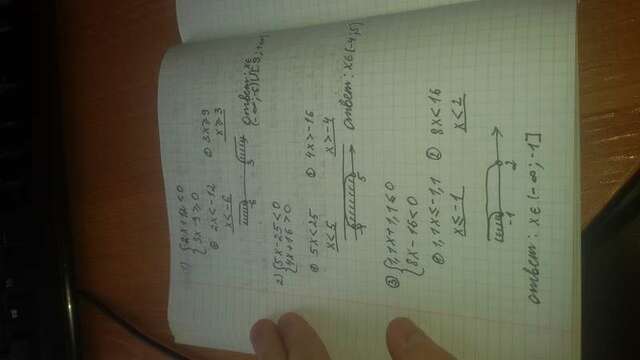 1) { 2x+12<0
{ 3x-9≥0
① 2x<-12 ② 3x≥9
x<-6 x≥3
-6 3 ответ: x∈
(-∞;-6)∪[3;+∞)
2) { 5x-25<0
{ 4x+16>0
① 5x<25 ② 4x>-16
x<5 x>-4
5 ответ: x∈(-4;5)
③ { 1,1x+1,1≤0
{ 8x-16<0
① 1,1x≤-1,1 ② 8x<16
x≤-1 x<2
-1 2
ответ: x∈(-∞;-1]